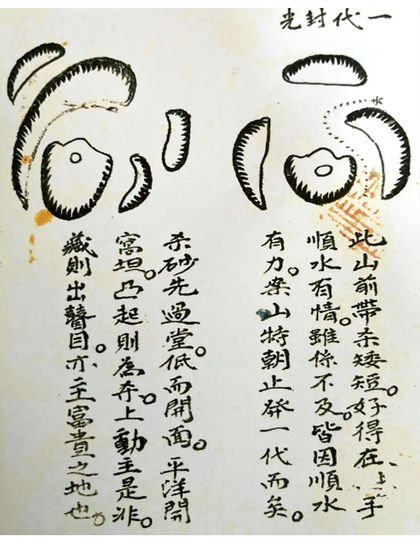 一代封光
此山前帶杀矮短。好得在 手
順水有情。雖係不及。皆因順水
有力。案山特朝止發一代而矣。
杀砂先過堂。低而開面。平洋開
窩坦。凸起則為夲。上動主是非。
藏則出瞽目。亦主富貴之地也。